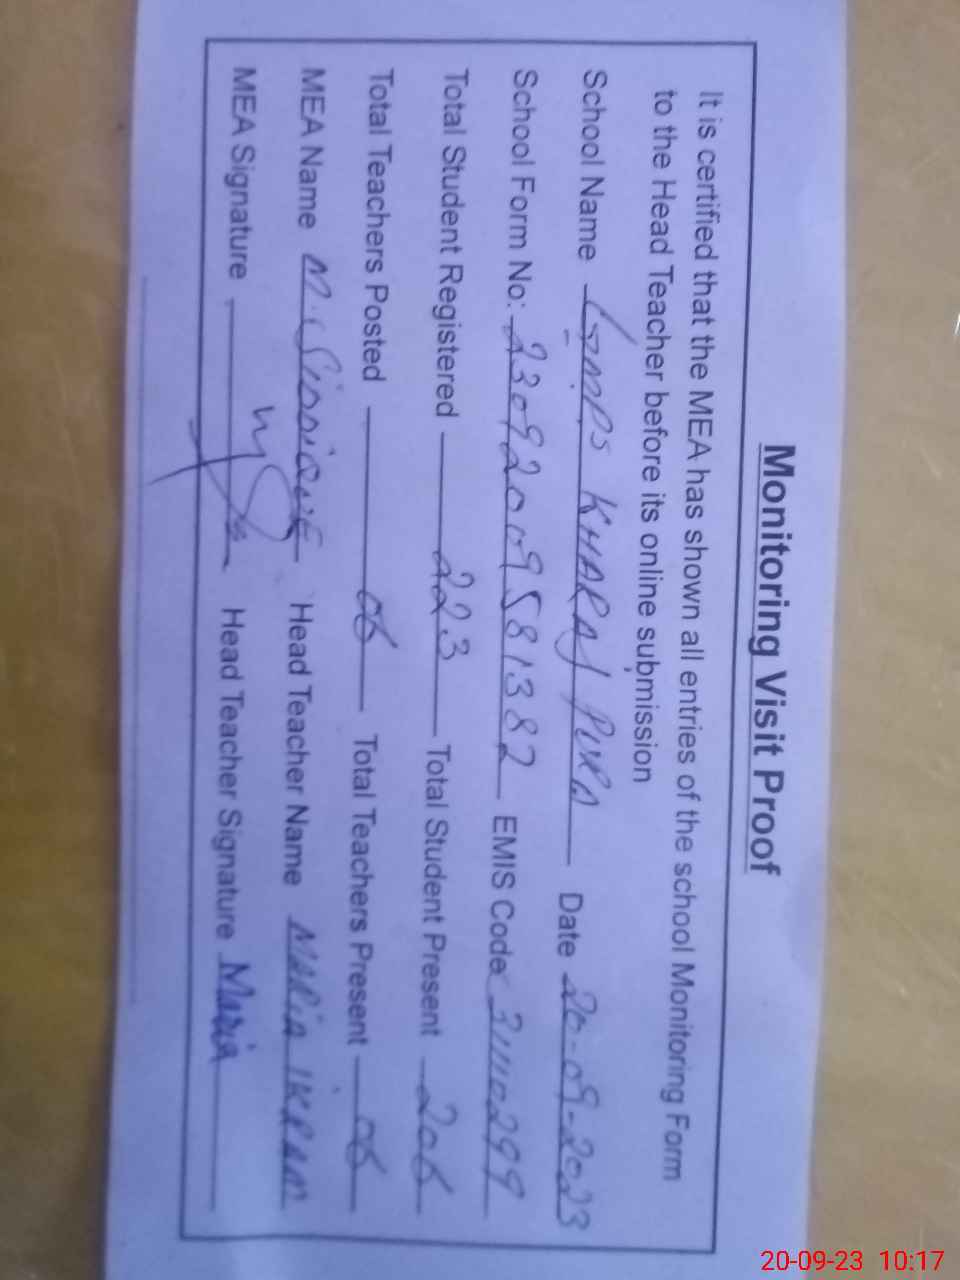 Monitoring Visit Proof
It is certified that the MEA has shown all entries of the school Monitoring Form
to the Head Teacher before its online submission
School Name GMPS KHARAJ PURA Date 20-09-2023
School Form No: 23092009581382 EMIS Code 31110299
Total Student Registered 223 Total Student Present 206
Total Teachers Posted 06 Total Teachers Present 06
MEA Name M. SIDDIQUE Head Teacher Name MARIA IKRAM
MEA Signature Head Teacher Signature Maria
20-09-23 10:17